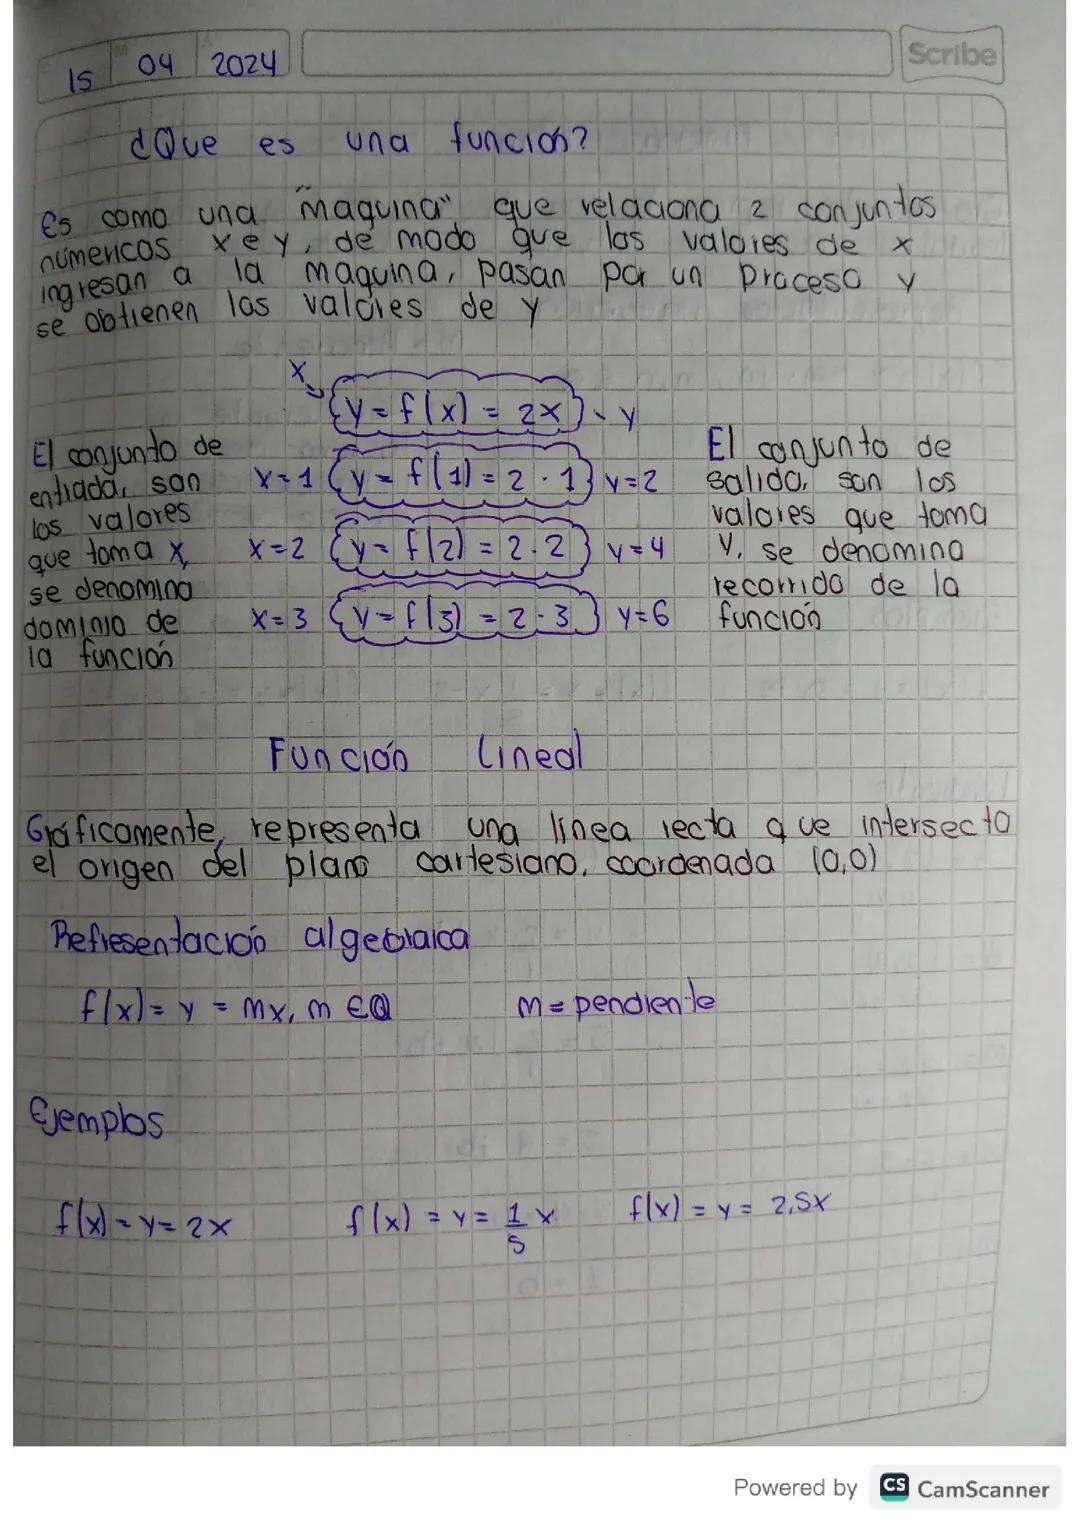 15 04 2024
Scribe
¿Que es una función?
Es como una "maquina" que relaciona 2 conjuntos
númericos x e y, de modo que los valores de x
ingresan a la maquina, pasan por un proceso y
se obtienen los valores de y
x
y = f(x) = 2x
y
El conjunto de
entrada, son
los valores
que toma x,
se denomina
dominio de
la función
x=1 y = f(1) = 2 · 1 y=2
x=2 y = f(2) = 2·2 y=4
x=3 y = f(3) = 2·3 y=6
El conjunto de
salida, son los
valores que toma
y, se denomina
recorrido de la
función
Función Lineal
Gráficamente, representa una línea recta que intersecta
el origen del plano cartesiano, coordenada (0,0)
Representación algebraica
f(x)= y = mx, m ∈ Q m = pendiente
Ejemplos
f(x) = y = 2x f(x) = y = 1/5 x f(x) = y = 2,5x
Powered by CS CamScanner